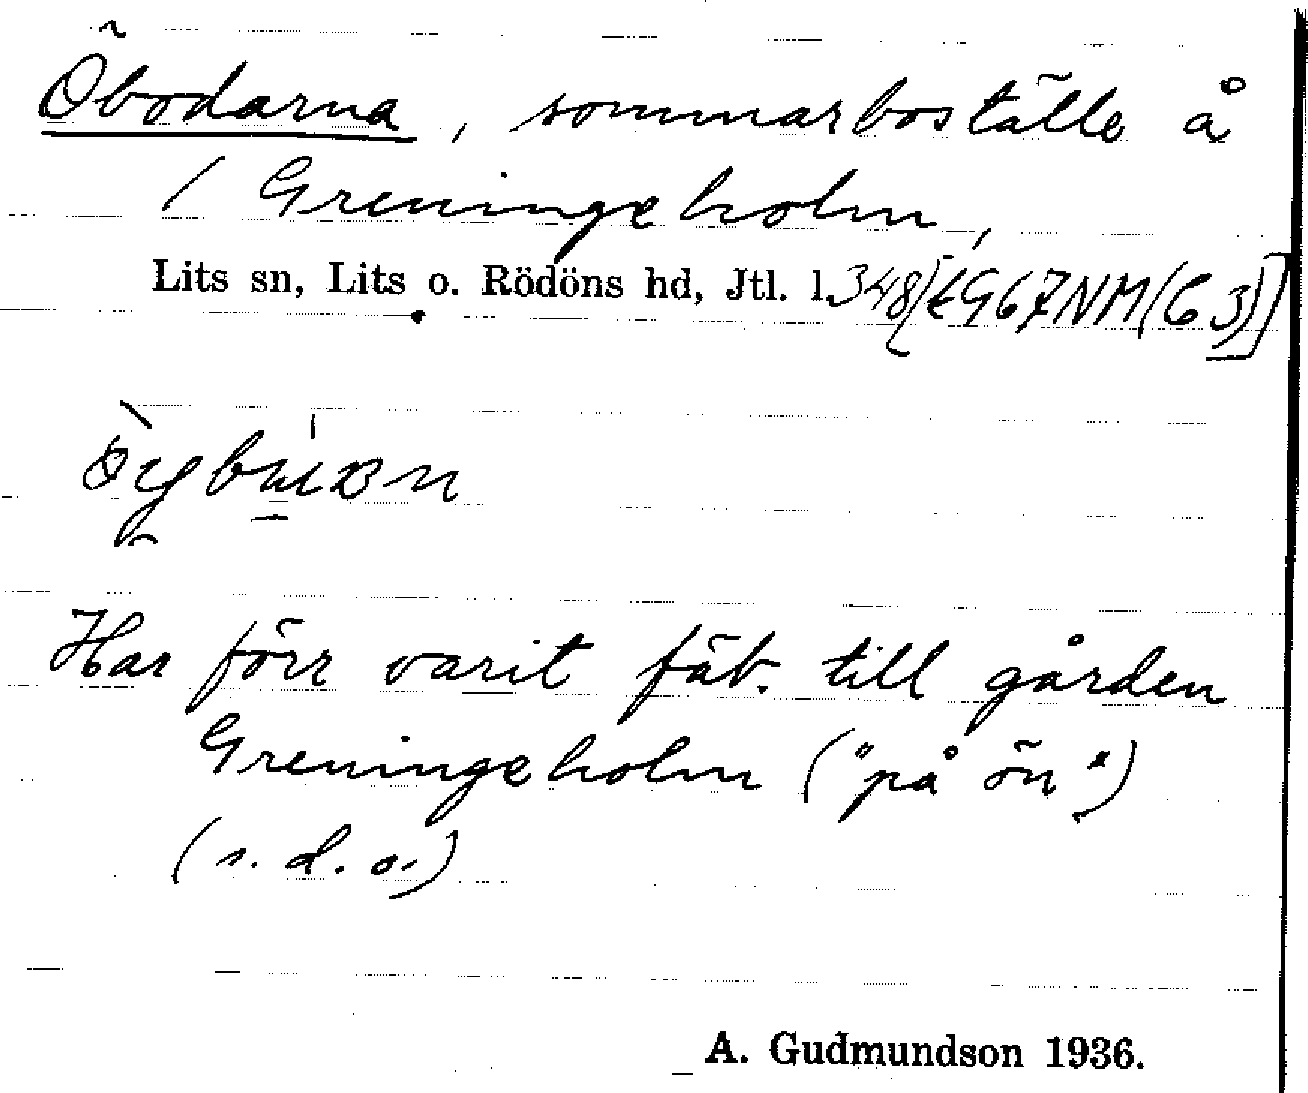 Öbodarna, sommarboställe å
/ Greningeholm,
Lits sn, Lits o. Rödöns hd, Jtl. l. 348
Har förr varit fäb. till gården
Greningeholm ("på ön")
(s. d. o.)
A. Gudmundson 1936.